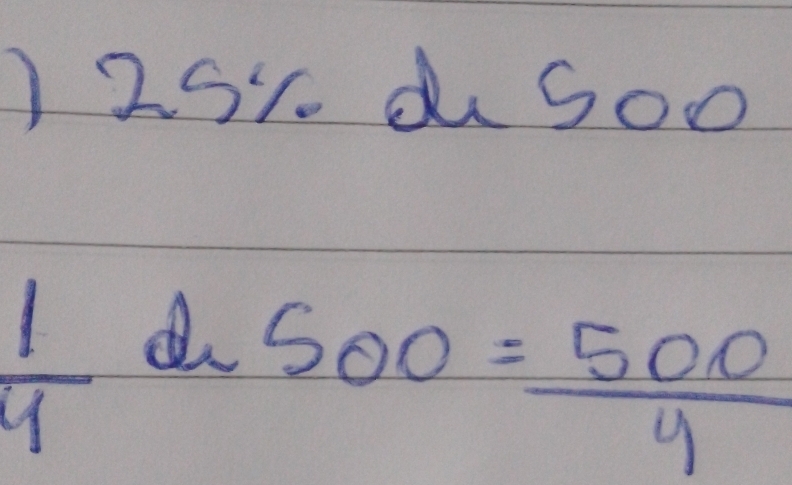 ) 25% de 500
1/4 de 500 = 500/4